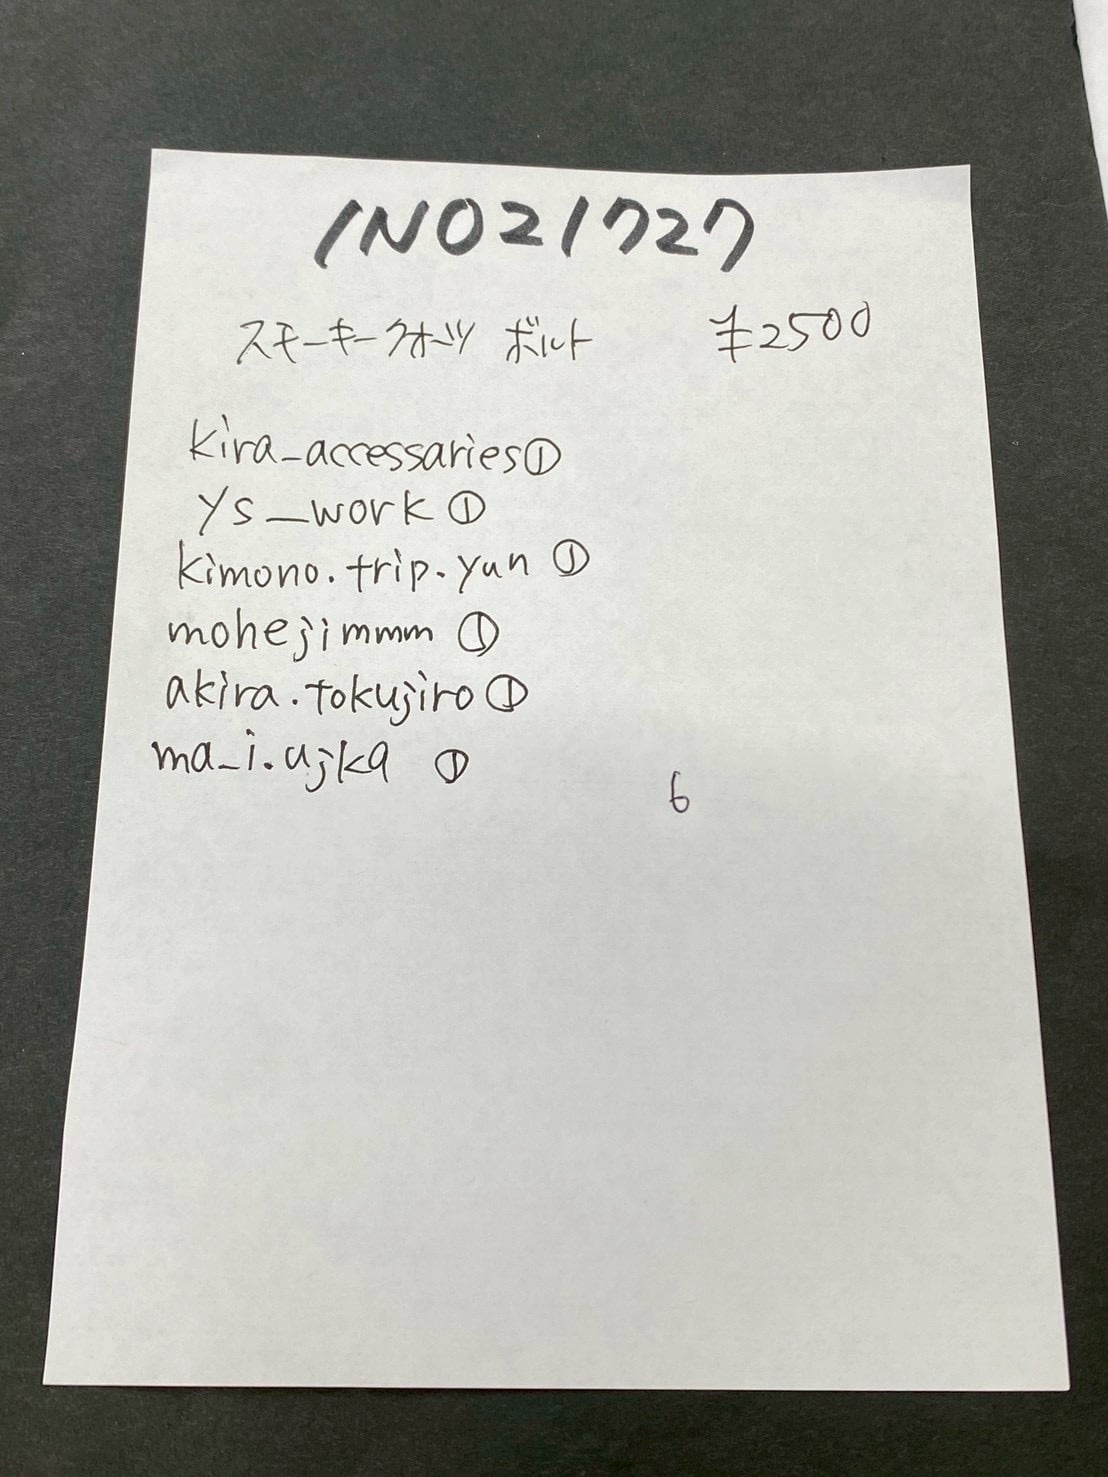 INO21727
スモーキークオーツ ボルト ¥2500
kira_accessaries①
ys_work①
kimono.trip.yun①
mohejimmm①
akira.tokujiro①
ma_i.ujka①
6